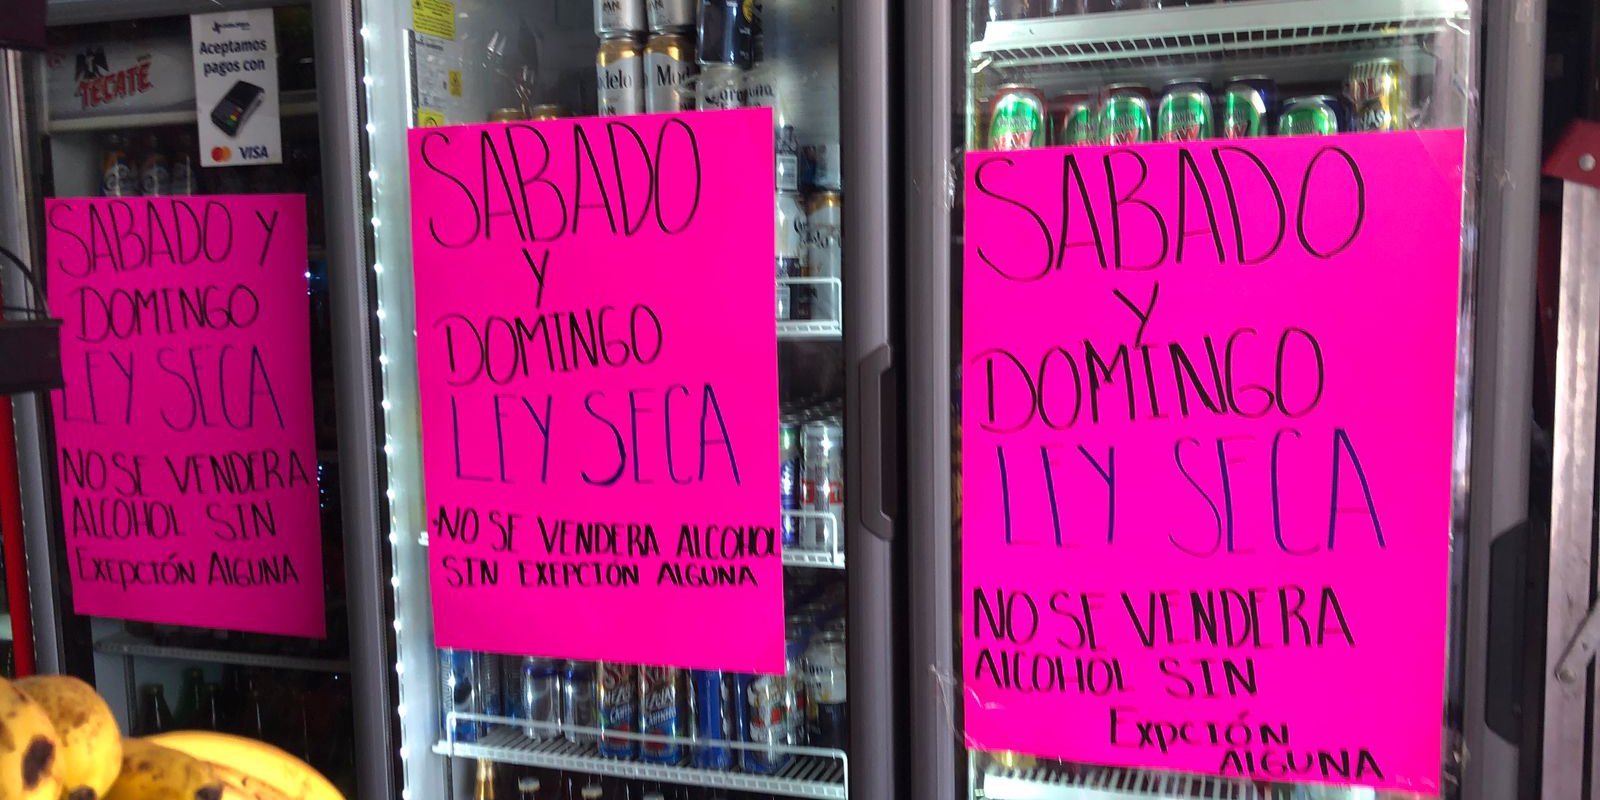 TECATE
Aceptamos
pagos con
VISA
SABADO Y
DOMINGO
LEY SECA
NO SE VENDERA
ALCOHOL SIN
EXEPCIÓN ALGUNA
Modelo
SABADO
Y
DOMINGO
LEY SECA
•NO SE VENDERA ALCOHOL
SIN EXEPCIÓN ALGUNA
SABADO
Y
DOMINGO
LEY SECA
NO SE VENDERA
ALCOHOL SIN
EXPCIÓN
ALGUNA